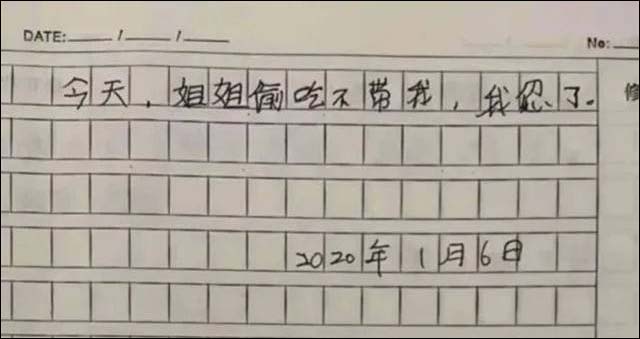 DATE: ___ / ___ / ___ No:
今天，姐姐偷吃不带我，我忍了.
2020年1月6日